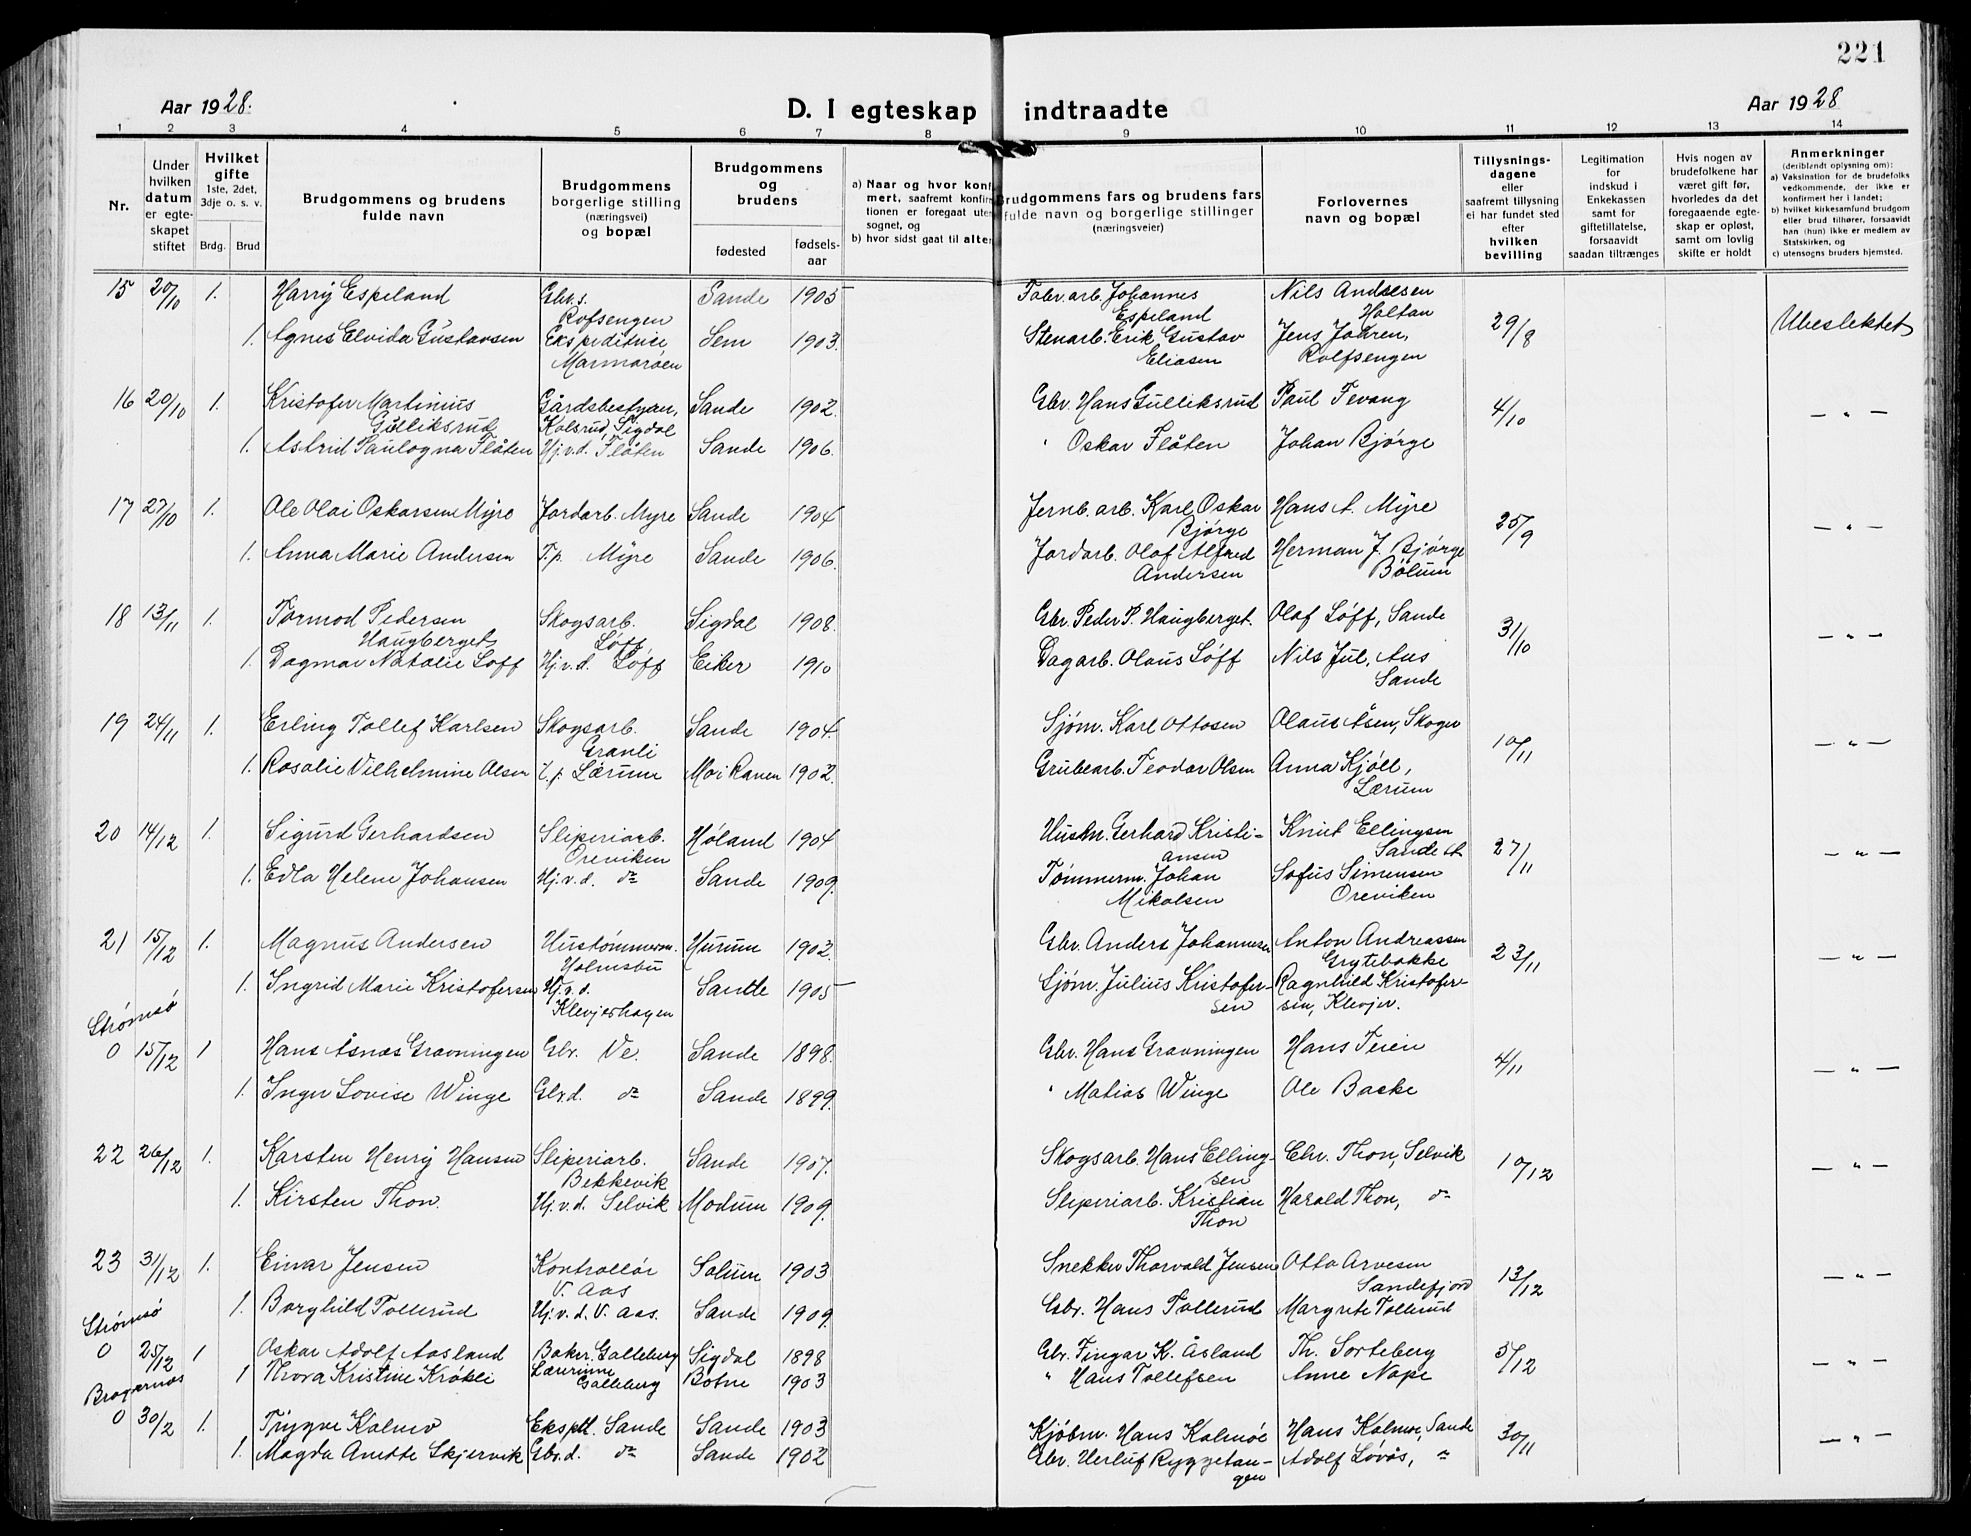 221
Aar 1928.
D. I egteskap indtraadte
Aar 1928
1 2 3 4 5 6 7 8 9 10 11 12 13 14
Nr.
Under hvilken datum er egteskapet stiftet
Hvilket gifte
1ste, 2det, 3dje o. s. v.
Brdg. Brud
Brudgommens og brudens fulde navn
Brudgommens borgerlige stilling (næringsvei) og bopæl
Brudgommens og brudens
fødested
fødsels-aar
a) Naar og hvor konf
mert, saafremt konfir
tionen er foregaat uten
sognet, og
b) hvor sidst gaat til alter
Brudgommens fars og brudens fars
fulde navn og borgerlige stillinger
(næringsveier)
Forlovernes
navn og bopæl
Tillysnings-
dagene
eller
saafremt tillysning
ei har fundet sted
efter
hvilken
bevilling
Legitimation
for
indskud i
Enkekassen
samt for
giftetillatelse,
forsaavidt
saadan tiltrænges
Hvis nogen av
brudefolkene har
været gift før,
hvorledes da det
foregaaende egte-
skap er opløst,
samt om lovlig
skifte er holdt
Anmerkninger
(deriblandt oplysning om):
a) Vaksination for de brudefolks
vedkommende, der ikke er
konfirmet her i landet;
b) hvilket kirkesamfund brudgom
eller brud tilhører, forsaavidt
han (hun) ikke er medlem av
Statskirken, og
c) utensogns bruders hjemsted.
15 20/10 1. Harry Espeland Gbr.s. Rofsengen Sande 1905 Fabr.arb. Johannes Espeland Nils Andresen Holtan 29/8 Ubeslektet
1. Agnes Elvida Gustavsen Ekspeditrise Marmorøen Sem 1903. Stenarb. Erik Gustav Eliasen Jens Joaren, Rolfsengen
16 20/10 1. Kristofer Martinius Gulliksrud Gårdsbestyrer, Kolsrud, Sigdal Sande 1902. Gbr. Hans Gulliksrud Paul Tevang 4/10 — " —
1. Astrid Paulogna Flåten Hj.v.d. Flåten Sande 1906. " Oskar Flåten Johan Bjørge
17 27/10 1. Ole Olai Oskarsen Myre Jordarb. Myre Sande 1904 Jernb. arb. Karl Oskar Bjørge Hans A. Myre 25/9 — " —
1. Anna Marie Andersen T.p. Myre Sande 1906. Jordarb. Olaf Alfred Andersen Herman J. Bjørge Bølum
18 13/11 1. Tormod Pedersen Haugberget Skogsarb. Løff Sigdal 1908. Gbr. Peder P. Haugberget. Olaf Løff, Sande 31/10 — " —
1. Dagmar Natalie Løff Hj.v.d. Løff Eiker 1910 Dagarb. Olaus Løff Nils Jul. Aas Sande
19 24/11 1. Erling Tollef Karlsen Skogsarb. Granli Sande 1904. Sjøm. Karl Ottosen Olaus Åsen, Skoger 10/11 — " —
1. Rosalie Vilhelmine Olsen T.p. Lærum Moi Ranen 1902. Grubearb. Teodor Olsen Anna Kjøll, Lærum
20 14/12 1. Sigurd Gerhardsen Sliperiarb. Oreviken Høland 1904 Husm. Gerhard Kristiansen Knut Ellingsen Sande st 27/11 — " —
1. Edla Helene Johansen Hj.v.d. do Sande 1909. Tømmerm. Johan Mikalsen Sofus Simensen Oreviken
21 15/12 1. Magnus Andersen Hustømmerm. Holmsbu Hurum 1902. Gbr. Anders Johannesen Anton Andreassen Grytebakke 23/11 — " —
1. Ingrid Marie Kristofersen Hj.v.d. Klevjerhagen Sande 1905 Sjøm. Julius Kristofersen Ragnhild Kristofersen, Klevjer.
Strømsø
0 15/12 1 Hans Åsnæs Gravningen Gbr. Ve. Sande 1898. Gbr. Hans Gravningen Hans Teien 4/11 — " —
1. Inger Lovise Winge Gbr.d. do Sande 1899. " Matias Winge Ole Baske
22 26/12 1. Karsten Henry Hansen Sliperiarb. Bekkevik Sande 1907. Skogsarb. Hans Ellingsen Chr. Thon, Selvik 10/12 — " —
1. Kirsten Thon. Hj.v.d. Selvik Modum 1909. Sliperiarb. Kristian Thon Harald Thon, do
23 31/12 1. Einar Jensen Kontrollør V. Aas Solum 1903 Snekker Thorvald Jensen Otto Arvesen Sandefjord 13/12 — " —
1. Borghild Tollerud Hj.v.d. V. Aas. Sande 1909. Gbr. Hans Tollerud Margrete Tollerud
Strømsø
0 25/12 1 Oskar Adolf Aasland Baker, Galleberg Sigdal 1898 Gbr. Fingar K. Åsland Th. Sorteberg 5/12 — " —
1 Thora Kristine Krøkli Galleberg Botne 1903 " Hans Tollefsen Anne Nape
Bragernæs
0 30/2 1. Trygve Kalmo Ekspdt. Sande Sande 1903 Kjøbm. Hans Kalmøe Hans Kalmoe, Sande 30/11 — " —
1. Magda Anette Skjervik Gbr.d. do Sande 1902 Gbr. Herluf Ryggetangen Adolf Løvås, "